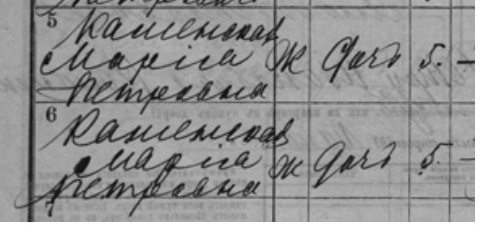 5
Каменская
Марiя Ж Дочь 5. –
Петровна
6
Каменская
Марiя Ж Дочь 5. –
Петровна